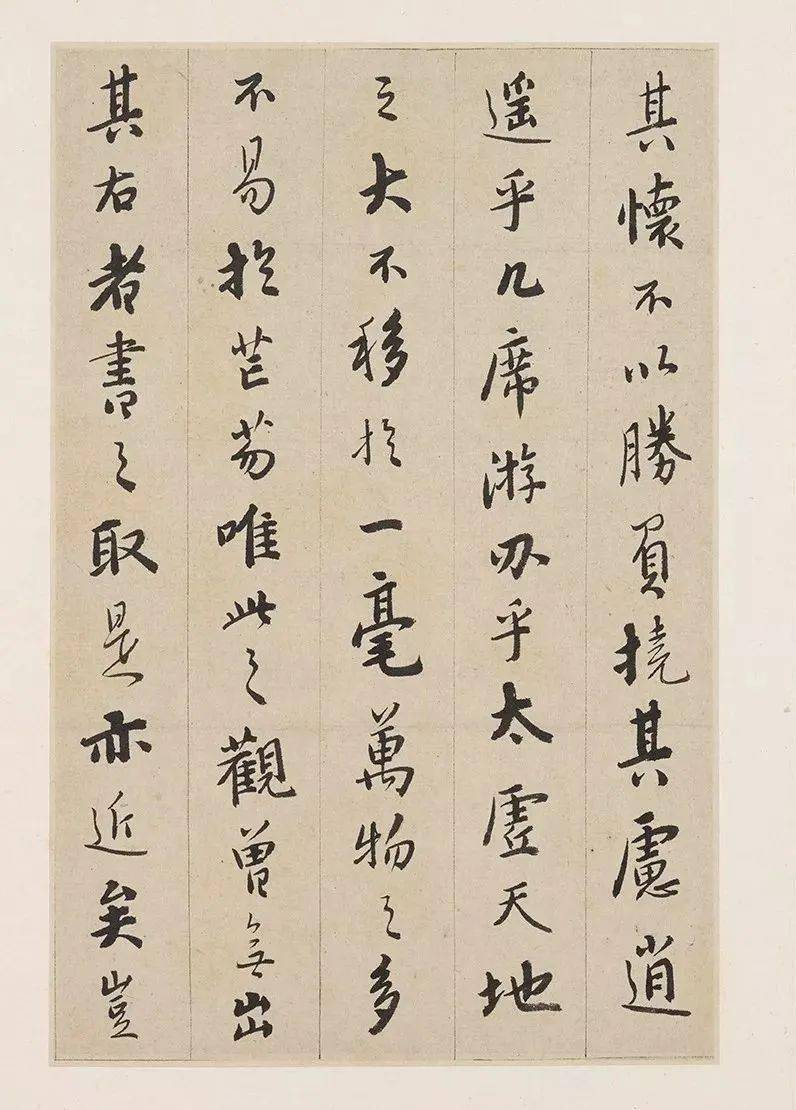 其懷不以勝負撓其慮逍
遥乎几席游刃乎太虛天地
之大不移於一毫萬物之多
不易於芒芴唯此之觀曾無出
其右者書之取是亦近矣豈